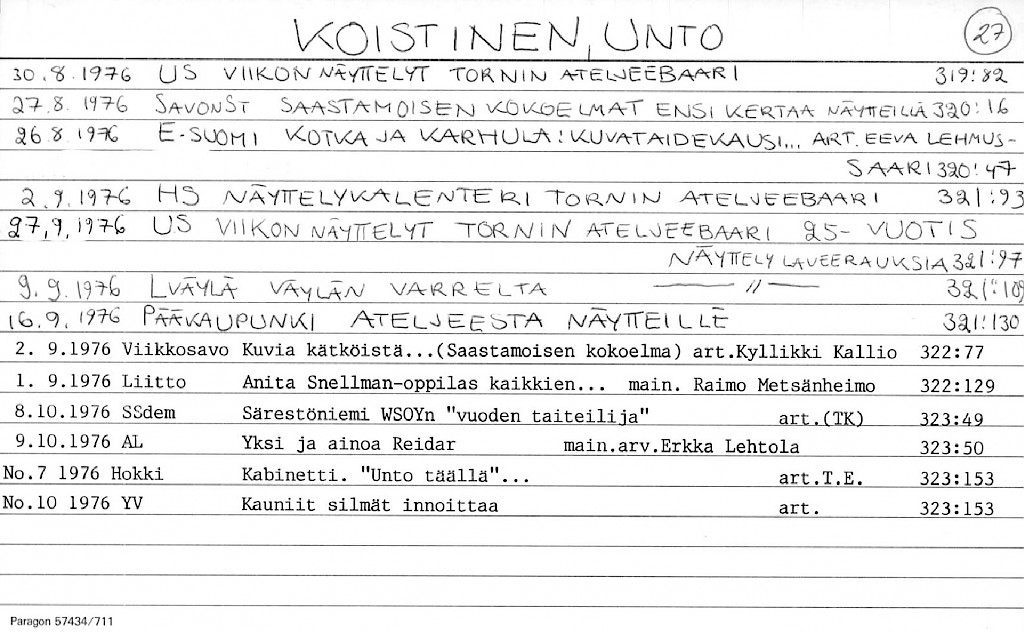 KOISTINEN, UNTO 27
30.8.1976 US VIIKON NÄYTTELYT TORNIN ATELJEEBAARI 319:82
27.8.1976 SAVONST SAASTAMOISEN KOKOELMAT ENSI KERTAA NÄYTTEILLÄ 320:16
26.8 1976 E-SUOMI KOTKA JA KARHULA: KUVATAIDEKAUSI... ART. EEVA LEHMUS-
SAARI 320:47
2.9.1976 HS NÄYTTELYKALENTERI TORNIN ATELJEEBAARI 321:93
27.9.1976 US VIIKON NÄYTTELYT TORNIN ATELJEEBAARI 25-VUOTIS
NÄYTTELY LAVEERAUKSIA 321:97
9.9.1976 LVÄYLÄ VÄYLÄN VARRELTA —— // —— 321:109
16.9.1976 PÄÄKAUPUNKI ATELJEESTA NÄYTTEILLE 321:130
2. 9.1976 Viikkosavo Kuvia kätköistä...(Saastamoisen kokoelma) art.Kyllikki Kallio 322:77
1. 9.1976 Liitto Anita Snellman-oppilas kaikkien... main. Raimo Metsänheimo 322:129
8.10.1976 SSdem Särestöniemi WSOYn "vuoden taiteilija" art.(TK) 323:49
9.10.1976 AL Yksi ja ainoa Reidar main.arv.Erkka Lehtola 323:50
No.7 1976 Hokki Kabinetti. "Unto täällä"... art.T.E. 323:153
No.10 1976 YV Kauniit silmät innoittaa art. 323:153
Paragon 57434/711